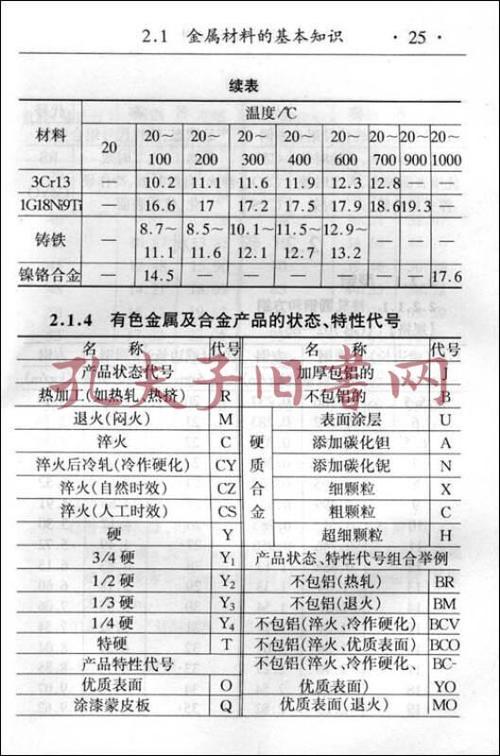 2.1 金属材料的基本知识 · 25 ·
续表
材料 温度/℃
20 20~100 20~200 20~300 20~400 20~600 20~700 20~900 20~1000
3Cr13 — 10.2 11.1 11.6 11.9 12.3 12.8 — —
1G18Ni9Ti — 16.6 17 17.2 17.5 17.9 18.6 19.3 —
铸铁 — 8.7~11.1 8.5~11.6 10.1~12.1 11.5~12.7 12.9~13.2 — — —
镍铬合金 — 14.5 — — — — — — 17.6
2.1.4 有色金属及合金产品的状态、特性代号
名 称 代号 名 称 代号
产品状态代号 加厚包铝的 J
热加工(如热轧、热挤) R 不包铝的 B
退火(闷火) M 硬质合金 表面涂层 U
淬火 C 添加碳化钽 A
淬火后冷轧(冷作硬化) CY 添加碳化铌 N
淬火(自然时效) CZ 细颗粒 X
淬火(人工时效) CS 粗颗粒 C
硬 Y 超细颗粒 H
3/4 硬 Y₁ 产品状态、特性代号组合举例
1/2 硬 Y₂ 不包铝(热轧) BR
1/3 硬 Y₃ 不包铝(退火) BM
1/4 硬 Y₄ 不包铝(淬火、冷作硬化) BCV
特硬 T 不包铝(淬火、优质表面) BCO
产品特性代号 不包铝(淬火、冷作硬化、 BC-
优质表面 O 优质表面) YO
涂漆蒙皮板 Q 优质表面(退火) MO
孔夫子旧书网